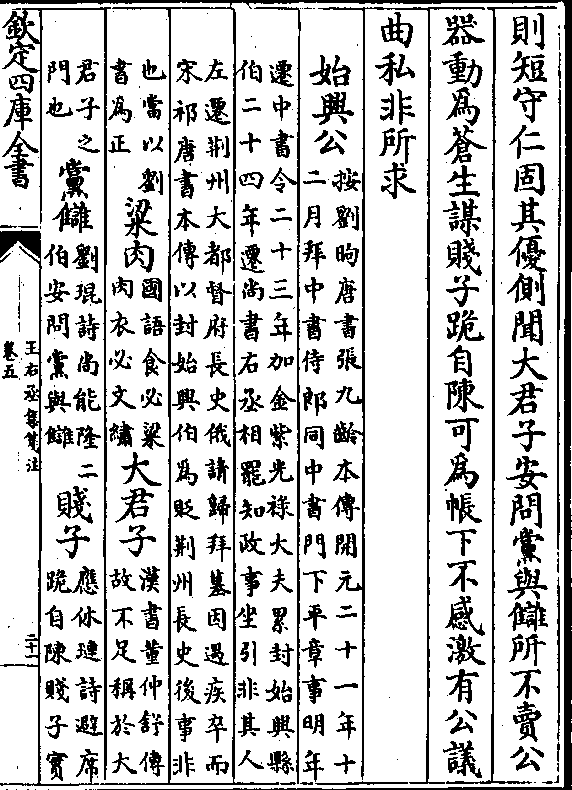 則短守仁固其優側聞大君子安問黨與讎所不賣公
器動為蒼生謀賤子跪自陳可為帳下不感激有公議
曲私非所求
始興公
按劉昫唐書張九齡本傳開元二十一年十
二月拜中書侍郎同中書門下平章事明年
遷中書令二十三年加金紫光祿大夫累封始興縣
伯二十四年遷尚書右丞相罷知政事坐引非其人
左遷荆州大都督府長史俄請歸拜墓因遇疾卒而
宋祁唐書本傳以封始興伯為貶荆州長史後事非
也當以劉
書為正
粱肉
國語食必粱
肉衣必文繡
大君子
漢書董仲舒傳
故不足稱於大
君子之
門也
黨讎
劉琨詩尚能隆二
伯安問黨與讎
賤子
應休璉詩避席
跪自陳賤子實
欽定四庫全書
王右丞集箋注
卷五
二十一